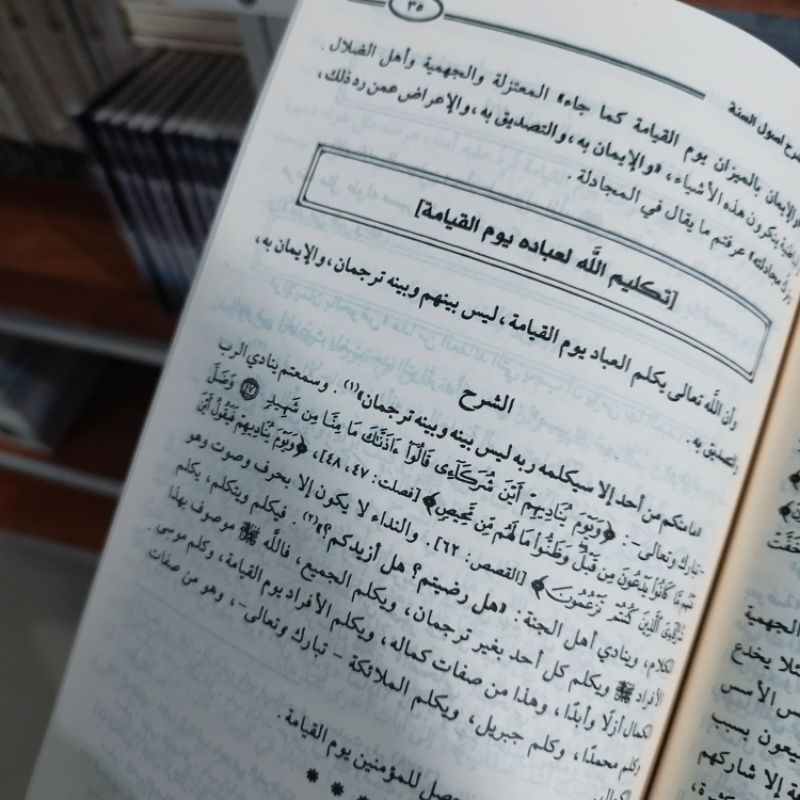 ٣٥
شرح أصول السنة
والإيمان بالميزان يوم القيامة كما جاء» المعتزلة والجهمية وأهل الضلال
ينكرون هذه الأشياء، «والإيمان به، والتصديق به، والإعراض عمن رد ذلك،
مجادلته» عرفتم ما يقال في المجادلة.
[تكليم الله لعباده يوم القيامة]
وأن الله تعالى يكلم العباد يوم القيامة، ليس بينهم وبينه ترجمان، والإيمان به،
والتصديق به.
الشرح
«ما منكم من أحد إلا سيكلمه ربه ليس بينه وبينه ترجمان»(١). وسمعتم ينادي الرب
-تبارك وتعالى-: ﴿وَيَوْمَ يُنَادِيهِمْ أَيْنَ شُرَكَآءِى قَالُوٓا۟ ءَاذَنَّـٰكَ مَا مِنَّا مِن شَهِيدٍ ﴿٤٧﴾ وَضَلَّ
عَنْهُم مَّا كَانُوا۟ يَدْعُونَ مِن قَبْلُ وَظَنُّوا۟ مَا لَهُم مِّن مَّحِيصٍ﴾ [فصلت: ٤٧، ٤٨]، ﴿وَيَوْمَ يُنَادِيهِمْ فَيَقُولُ أَيْنَ
شُرَكَآءِىَ ٱلَّذِينَ كُنتُمْ تَزْعُمُونَ﴾ [القصص: ٦٢]. والنداء لا يكون إلا بحرف وصوت وهو
الكلام، وينادي أهل الجنة: «هل رضيتم؟ هل أزيدكم؟»(٢). فيكلم ويتكلم، يكلم
الأفراد ﷺ ويكلم كل أحد بغير ترجمان، ويكلم الجميع، فالله ﷺ موصوف بهذا
الكمال أزلًا وأبدًا، وهذا من صفات كماله، ويكلم الأفراد يوم القيامة، وكلم موسى،
وكلم محمدًا، وكلم جبريل، ويكلم الملائكة - تبارك وتعالى-، وهو من صفات
الكمال
للمؤمنين يوم القيامة.
* * *
الجهمية
يخدع
الأسس
بسبب
إلا شاركهم